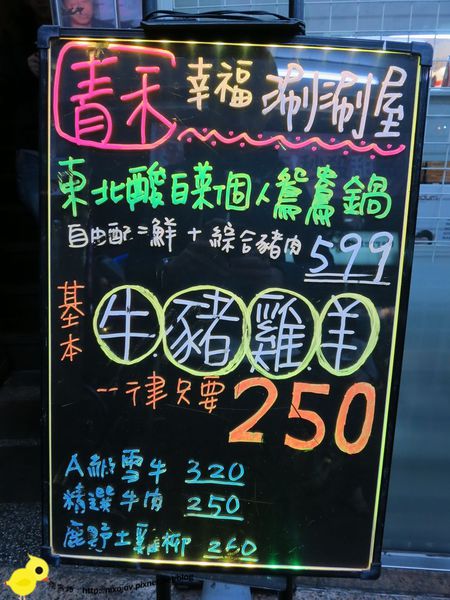 青禾 幸福 涮涮屋
東北酸白菜個人鴛鴦鍋
自由配二鮮+綜合豬肉 599
基本 牛.豬.雞.羊
一律只要 250
雪牛 320
精選牛肉 250
鹿野土雞柳 260